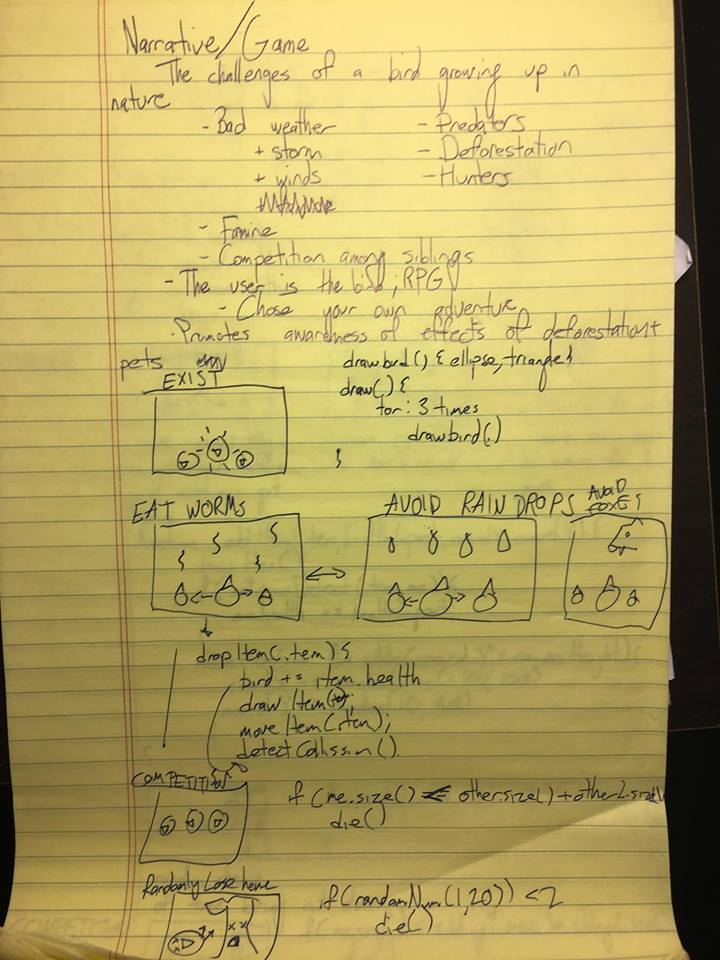 Narrative/Game
The challenges of a bird growing up in
nature
- Bad weather
+ storm
+ winds
- Predators
- Deforestation
- Hunters
- Famine
- Competition among siblings
- The user is the bird; RPG
- Chose your own adventure
- Promotes awareness of effects of deforestation +
pets
drawbird() { ellipse, triangle }
draw() {
for: 3 times
drawbird()
}
EXIST
EAT WORMS
AVOID RAIN DROPS
AVOID FOXES
dropItem(item) {
bird += item.health
drawItem(item);
moveItem(item);
detectCollission().
COMPETITION
if (me.size() < other.size() + other2.size()
die()
Randomly Lose here
if (randomNum(1,20)) < 2
die()